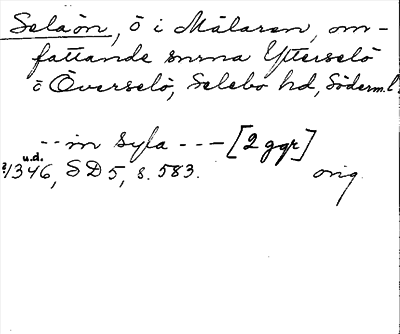 Selaön, ö i Mälaren, om-
fattande snrna Ytterselö
o Överselö, Selebo hd, Söderm.l.
-- in Syla --- [2 ggr]
u.d.
?/1346, SD 5, s. 583. orig.